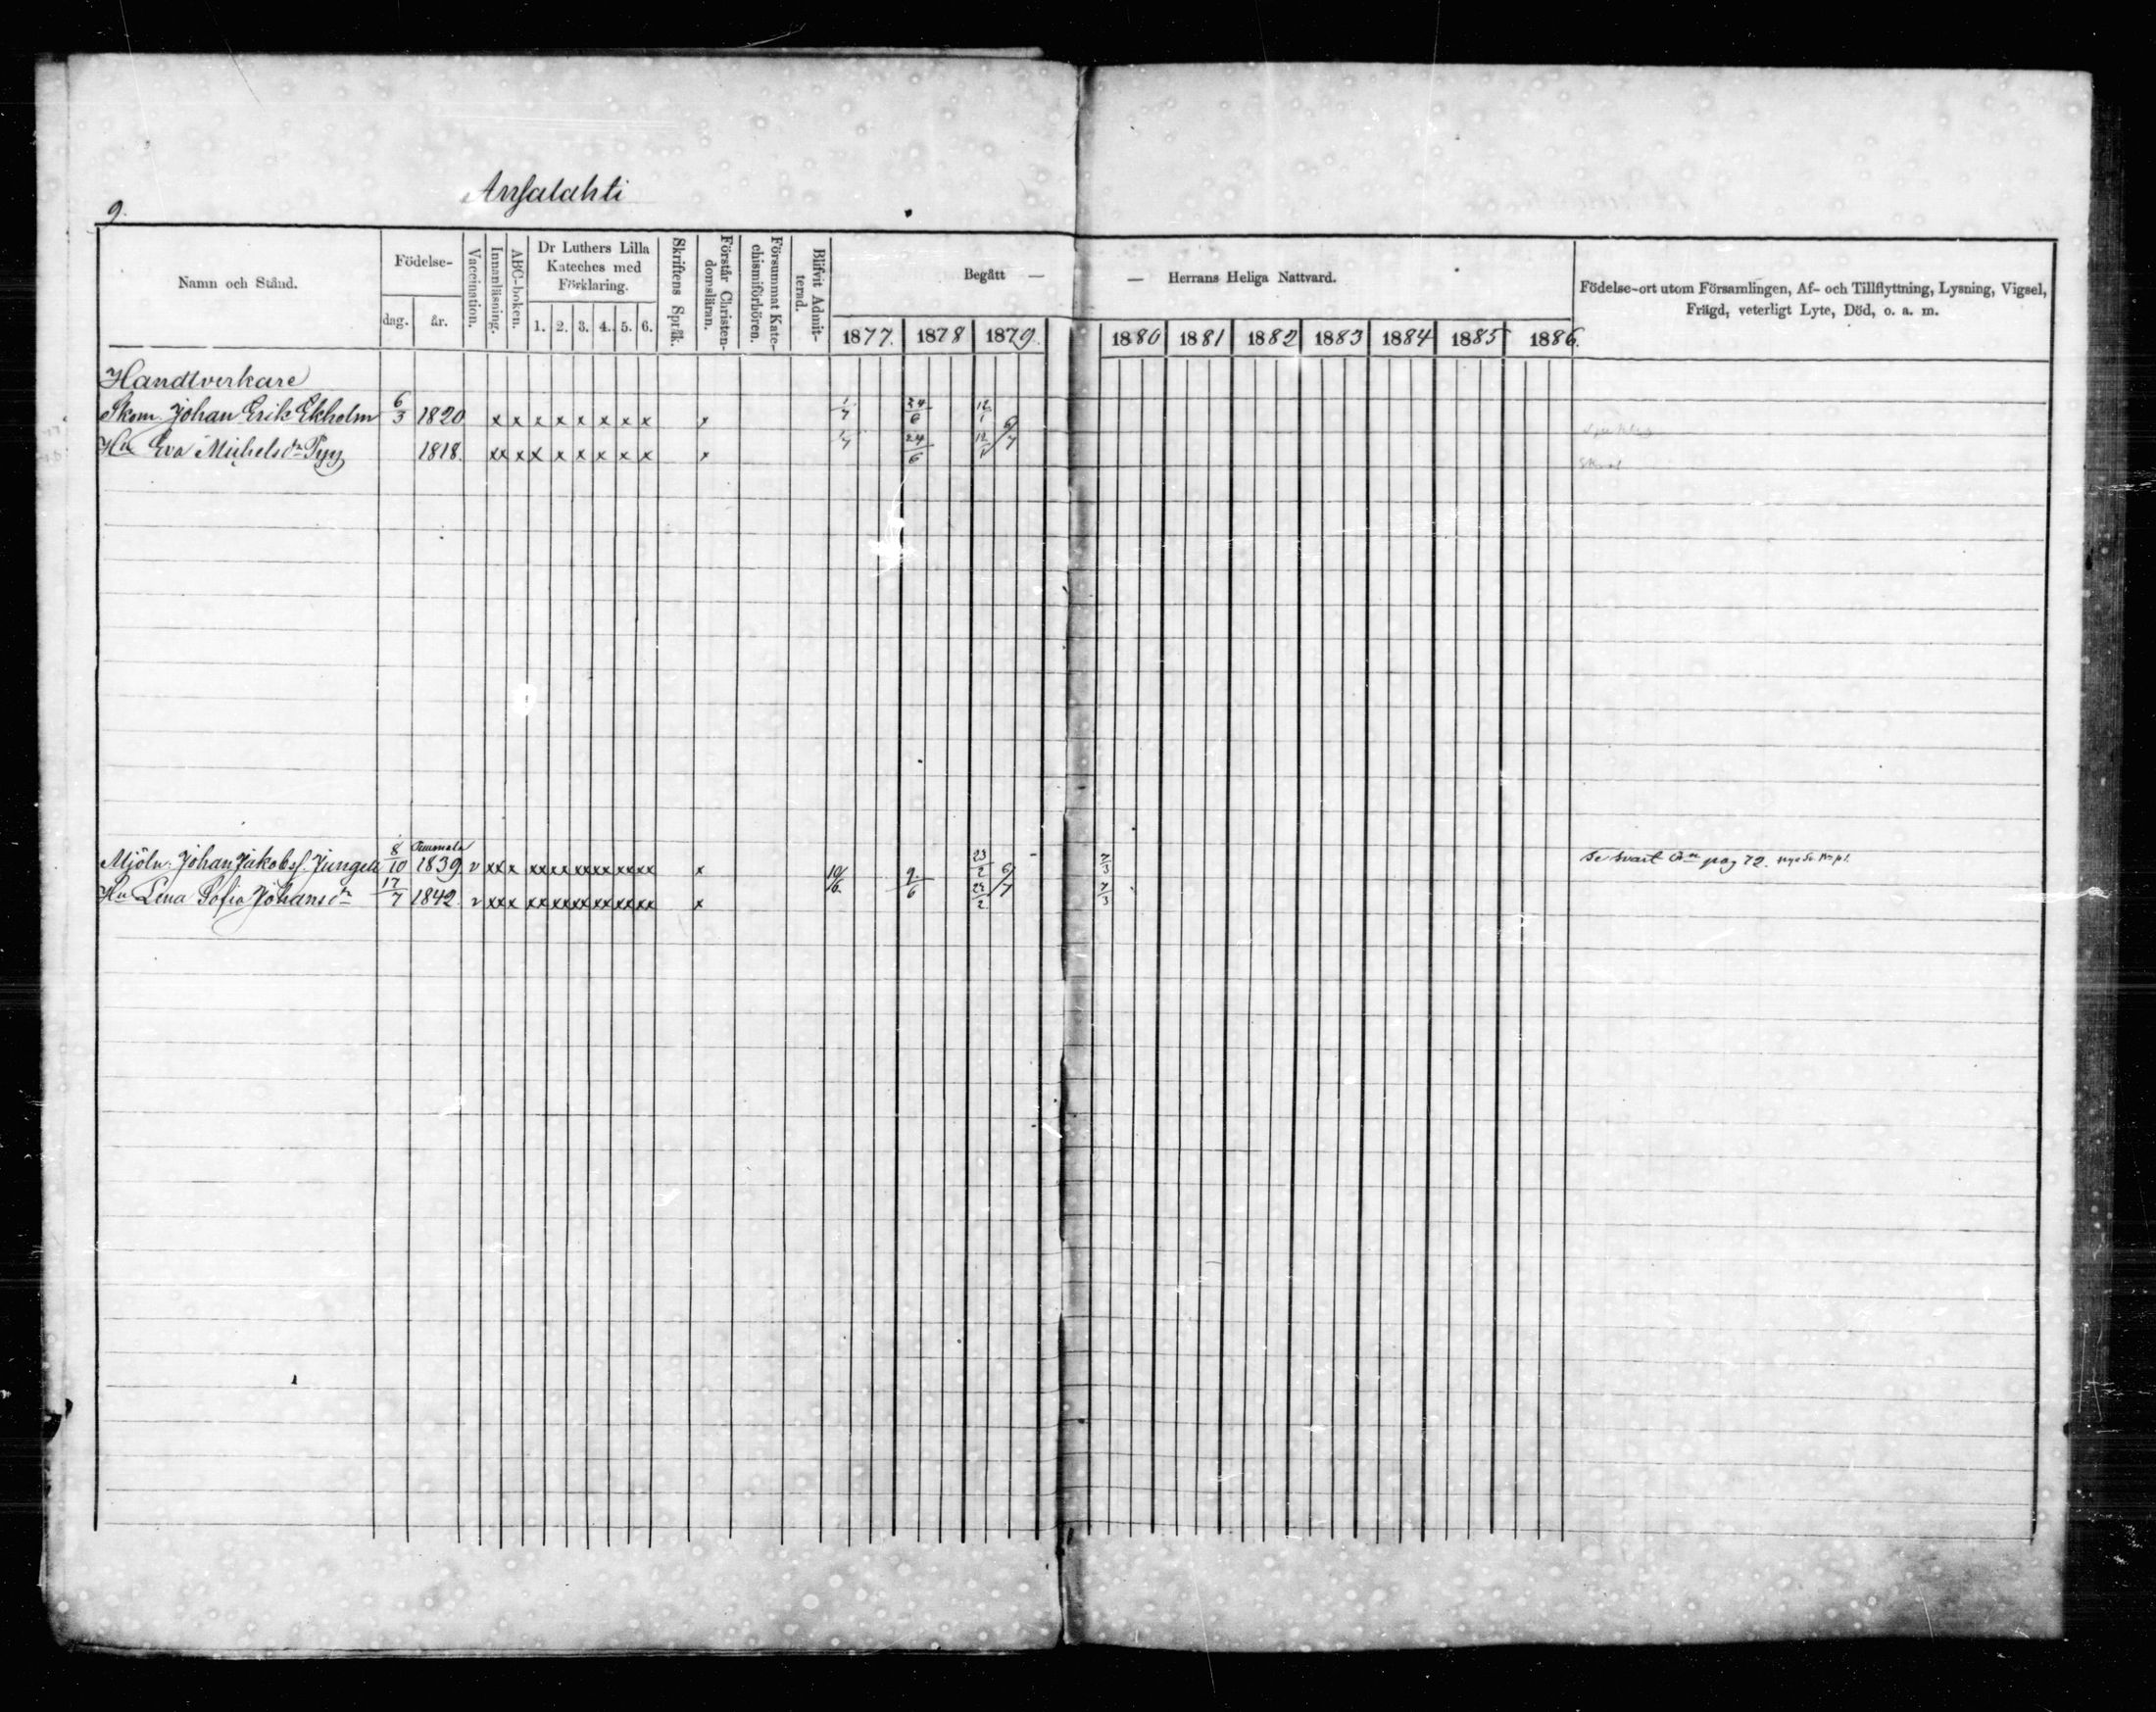 Ansalahti
9.
Namn och Stånd.
Födelse-
dag.
år.
Vaccination.
Innanläsning.
ABC-boken.
Dr Luthers Lilla
Kateches med
Förklaring.
1. 2. 3. 4. 5. 6.
Skriftens Språk.
Förstår Christen-
domsläran.
Försummat Kate-
chismiförhören.
Blifvit Admit-
terad.
Begått —
— Herrans Heliga Nattvard.
1877. 1878 1879. 1880 1881 1882 1883 1884 1885 1886.
Födelse-ort utom Församlingen, Af- och Tillflyttning, Lysning, Vigsel,
Frägd, veterligt Lyte, Död, o. a. m.
Handtverkare
Skom. Johan Erik Ekholm 6/3 1820 x x x x x x x x x 1/7 24/6 12/1 6/7
Hu Eva Michelsdr Pyy 1818. xx x x x x x x x x 1/7 24/6 12/1
Mjöln. Johan Jakobss. Jungell 8/10 1839 v xx x xx xx xx xx xx xx x 10/6 9/6 23/2 6/7 7/3 Se svart pag 72.
Hu Lena Sofia Johansdr 17/7 1842. v xx x xx xx xx xx xx xx x 23/2 7/3